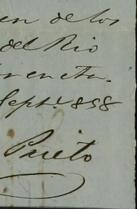 en de los
del Rio
Sept.e 1858
Prieto